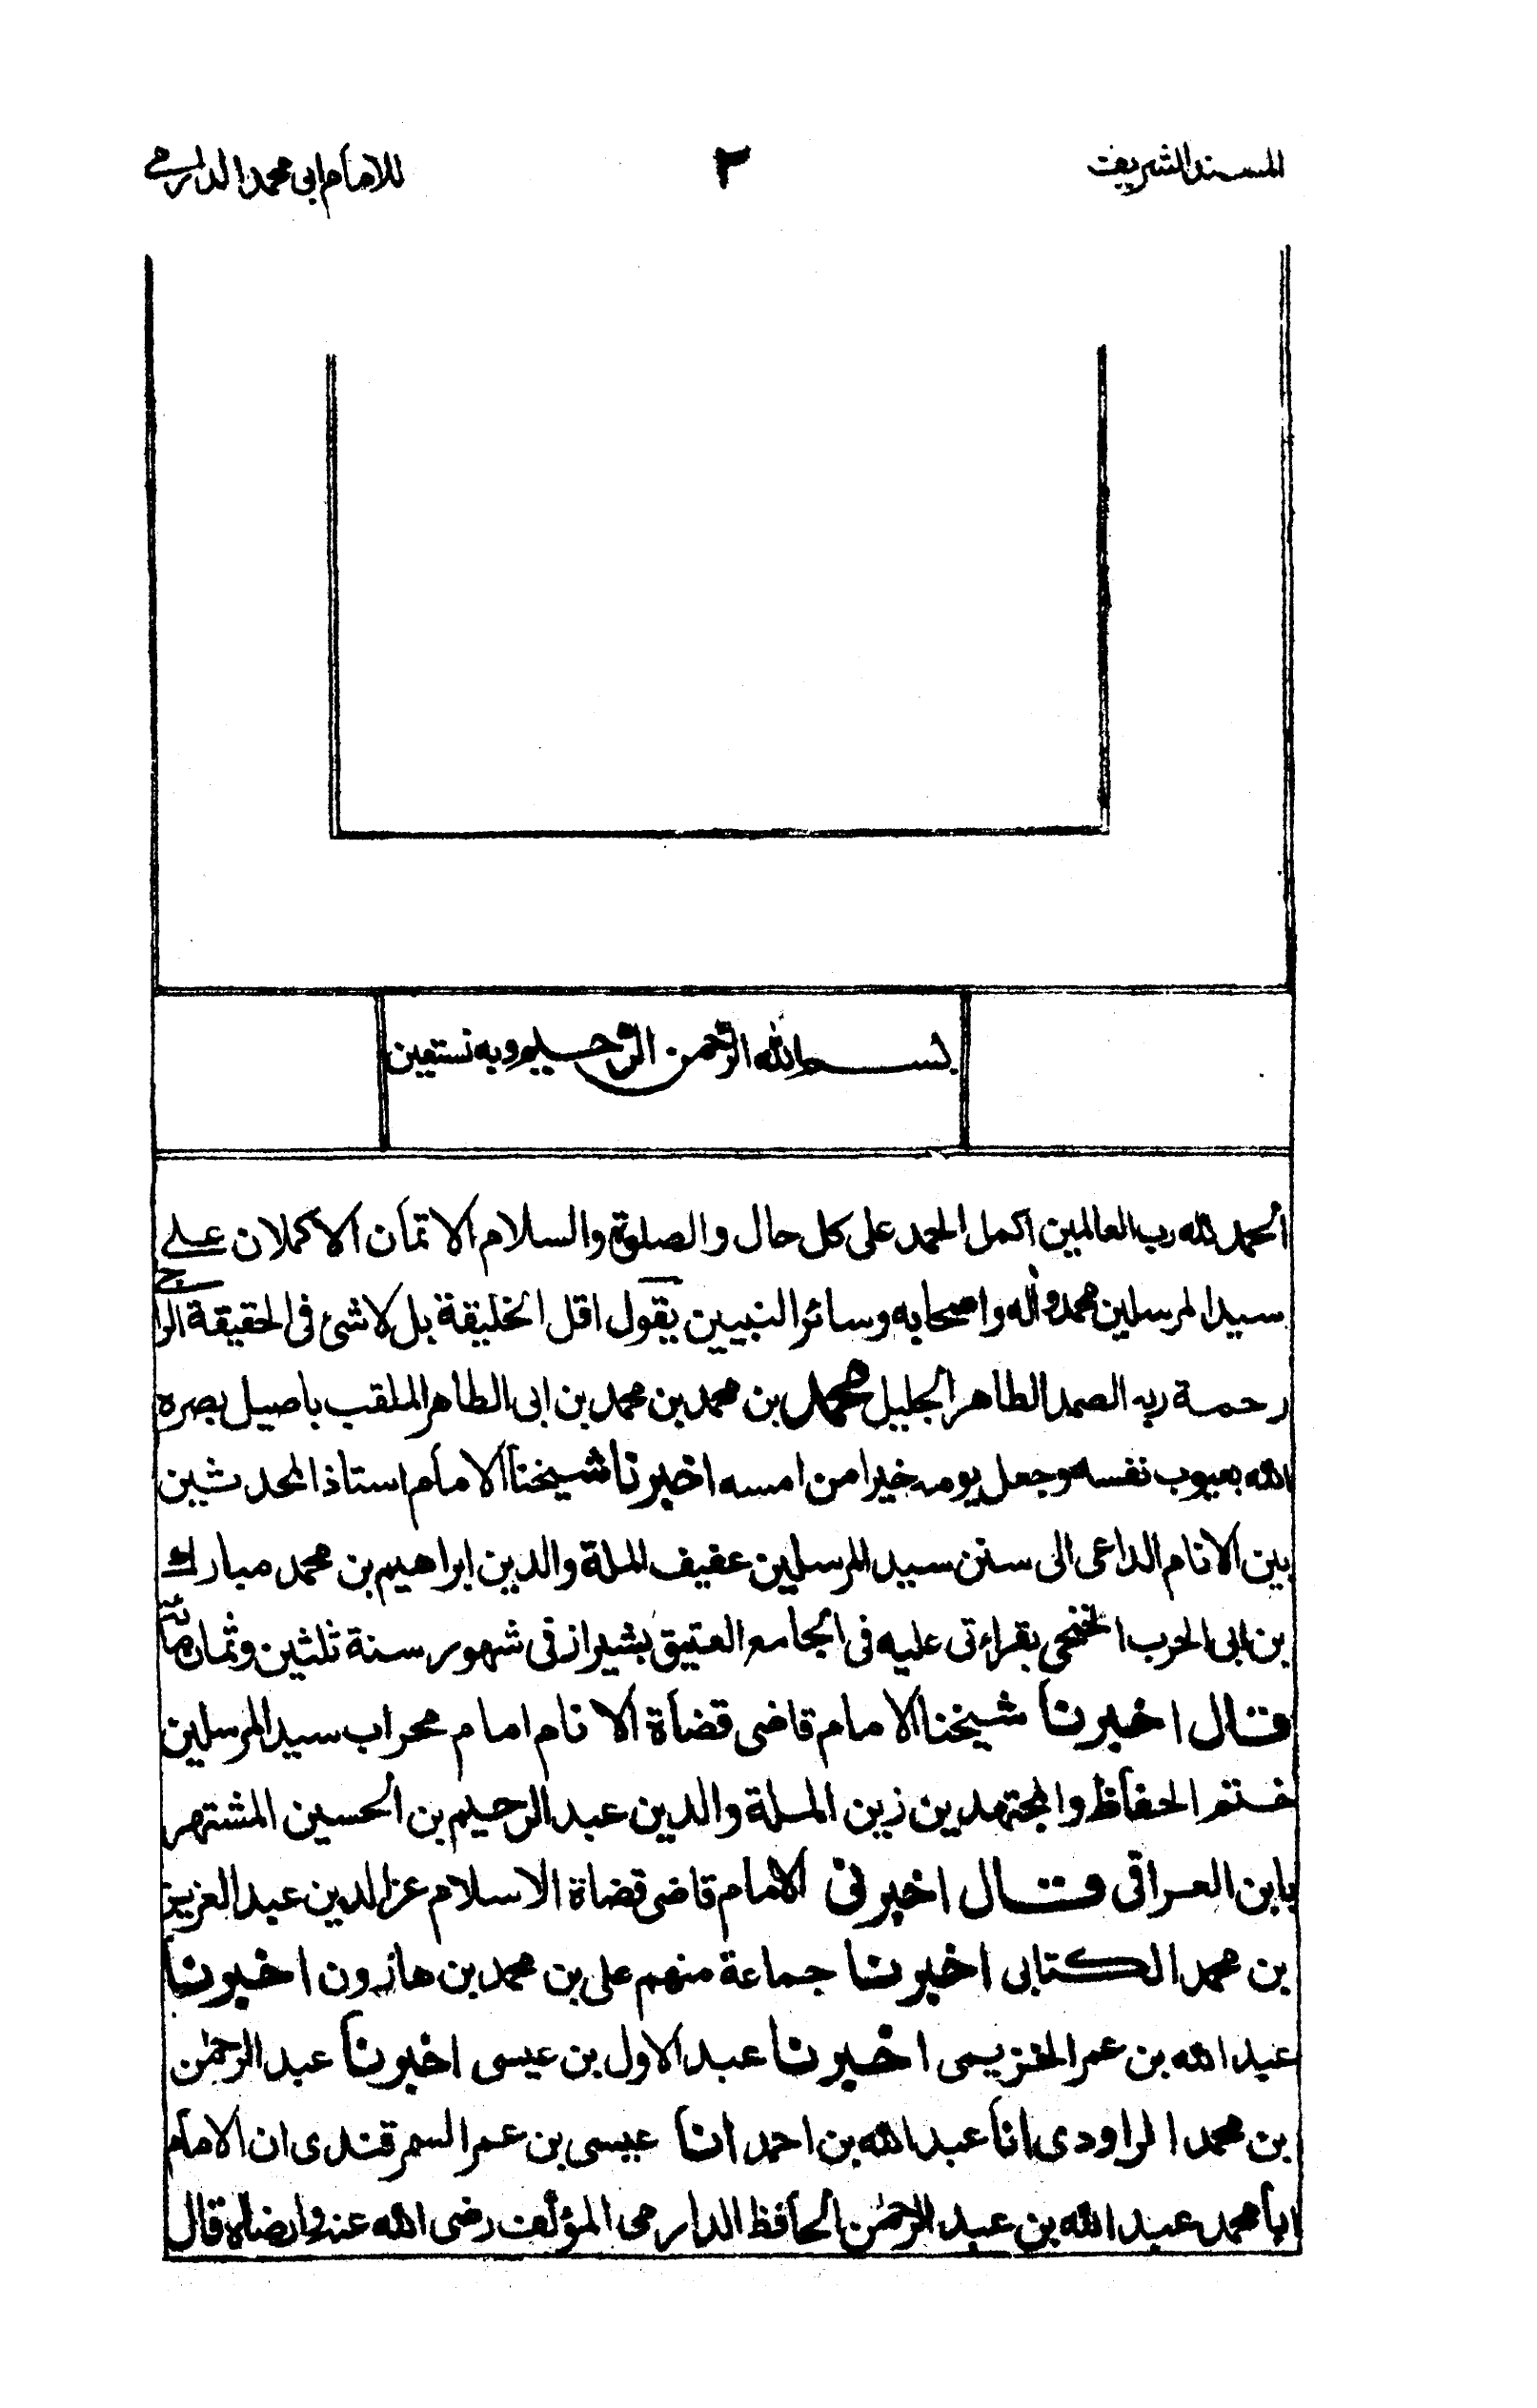 المسند الشريف
٢
للامام ابى محمد الدارمي
بسم الله الرحمن الرحيم وبه نستعين
الحمد لله رب العالمين اكمل الحمد على كل حال والصلوة والسلام الاتمان الاكملان على
سيد المرسلين محمد واله واصحابه وسائر النبيين يقول اقل الخليقة بل لا شئ فى الحقيقة الراجى
رحمة ربه الصمد الطاهر الجليل محمد بن محمد بن محمد بن ابى الطاهر الملقب باصيل بصره
الله بعيوب نفسه وجعل يومه خيرا من امسه اخبرنا شيخنا الامام استاذ المحدثين
بين الانام الداعى الى سنن سيد المرسلين عفيف الملة والدين ابراهيم بن محمد مبارك
بن ابى الحرب الخنجى بقراءتى عليه فى الجامع العتيق بشيراز فى شهور سنة ثلثين وثمان مائة
قال اخبرنا شيخنا الامام قاضى قضاة الانام امام محراب سيد المرسلين
ختم الحفاظ والمجتهدين زين الملة والدين عبد الرحيم بن الحسين المشتهر
بابن العراقى قال اخبرنى الامام قاضى قضاة الاسلام عز الدين عبد العزيز
بن محمد الكتابى اخبرنا جماعة منهم على بن محمد بن هارون اخبرنا
عبد الله بن عمر الخزيمى اخبرنا عبد الاول بن عيسى اخبرنا عبد الرحمن
بن محمد الراودى انا عبد الله بن احمد انا عيسى بن عمر السمرقندى ان الامام
ابا محمد عبد الله بن عبد الرحمن الحافظ الدارمى المؤلف رضى الله عنه وارضاه قال